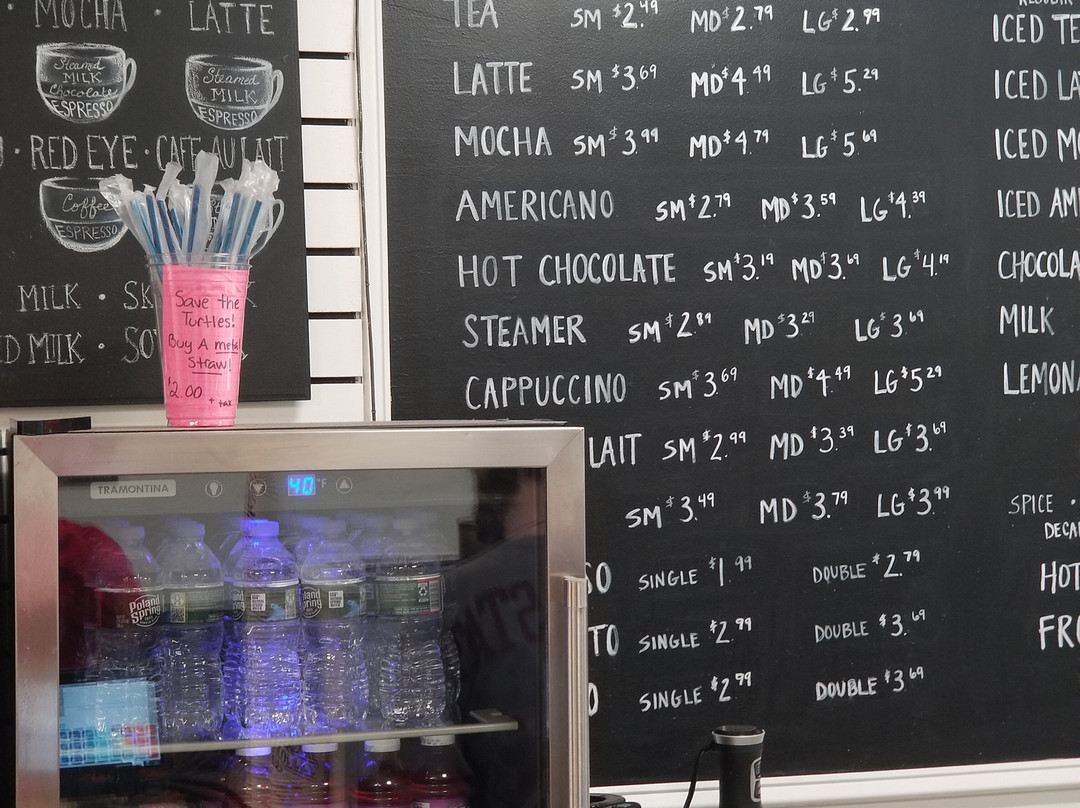 MOCHA · LATTE
Steamed MILK Chocolate ESPRESSO
Steamed MILK ESPRESSO
· RED EYE · CAFE AU LAIT
Coffee ESPRESSO
MILK · SK
D MILK · SO
Save the
Turtles!
Buy A metal
Straw!
$2.00 + tax
TRAMONTINA
40 °F
Poland Spring
TEA SM $2.49 MD $2.79 LG $2.99
LATTE SM $3.69 MD $4.49 LG $5.29
MOCHA SM $3.99 MD $4.79 LG $5.69
AMERICANO SM $2.79 MD $3.59 LG $4.39
HOT CHOCOLATE SM $3.19 MD $3.69 LG $4.19
STEAMER SM $2.89 MD $3.29 LG $3.69
CAPPUCCINO SM $3.69 MD $4.49 LG $5.29
LAIT SM $2.99 MD $3.39 LG $3.69
SM $3.49 MD $3.79 LG $3.99
SO SINGLE $1.99 DOUBLE $2.79
TO SINGLE $2.99 DOUBLE $3.69
O SINGLE $2.99 DOUBLE $3.69
ICED TE
ICED LA
ICED MO
ICED AM
CHOCOLA
MILK
LEMONA
SPICE ·
DECA
HOT
FRO